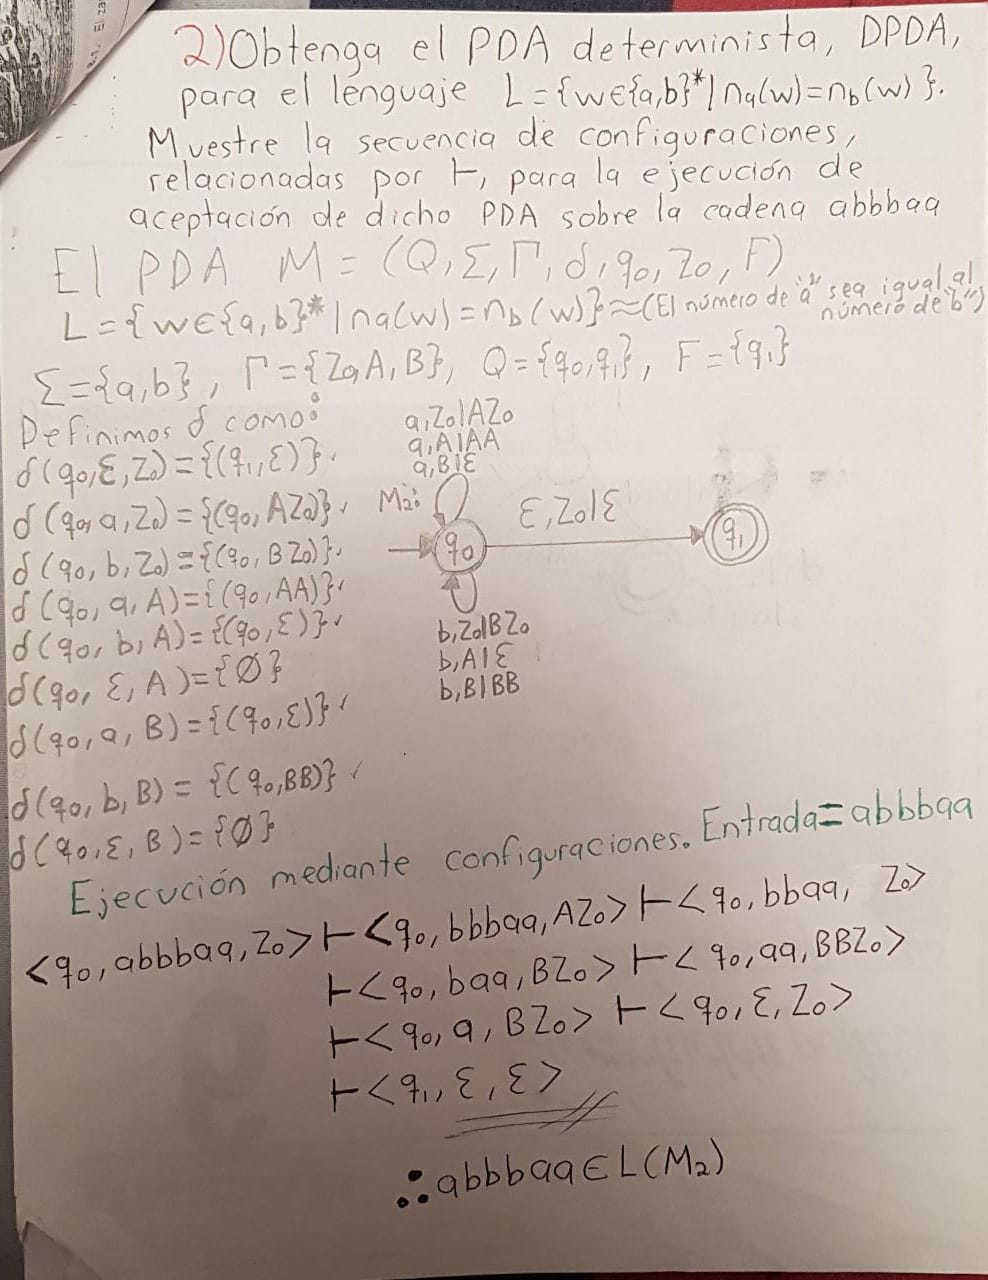 2)Obtenga el PDA determinista, DPDA,
para el lenguaje L={w∈{a,b}*|na(w)=nb(w)}.
Muestre la secuencia de configuraciones,
relacionadas por ⊢, para la ejecución de
aceptación de dicho PDA sobre la cadena abbbaa
El PDA M = (Q,Σ,Γ,δ,q0,Z0,F)
L={w∈{a,b}*|na(w)=nb(w)}≈(El número de "a" sea igual al número de "b")
Σ={a,b}, Γ={Z0A,B}, Q={q0,q1}, F={q1}
Definimos δ como:
δ(q0,ε,Z0)={(q1,ε)}.
δ(q0,a,Z0)={(q0,AZ0)}.
δ(q0,b,Z0)={(q0,BZ0)}.
δ(q0,a,A)={(q0,AA)}.
δ(q0,b,A)={(q0,ε)}.
δ(q0,ε,A)={∅}
δ(q0,a,B)={(q0,ε)}
δ(q0,b,B)={(q0,BB)}
δ(q0,ε,B)={∅}
a,Z0|AZ0
a,A|AA
a,B|ε
M2:
q0
ε,Z0|ε
q1
b,Z0|BZ0
b,A|ε
b,B|BB
Ejecución mediante configuraciones. Entrada=abbbaa
<q0,abbbaa,Z0>⊢<q0,bbbaa,AZ0>⊢<q0,bbaa, Z0>
⊢<q0,baa,BZ0>⊢<q0,aa,BBZ0>
⊢<q0,a,BZ0>⊢<q0,ε,Z0>
⊢<q1,ε,ε>
∴abbbaa∈L(M2)